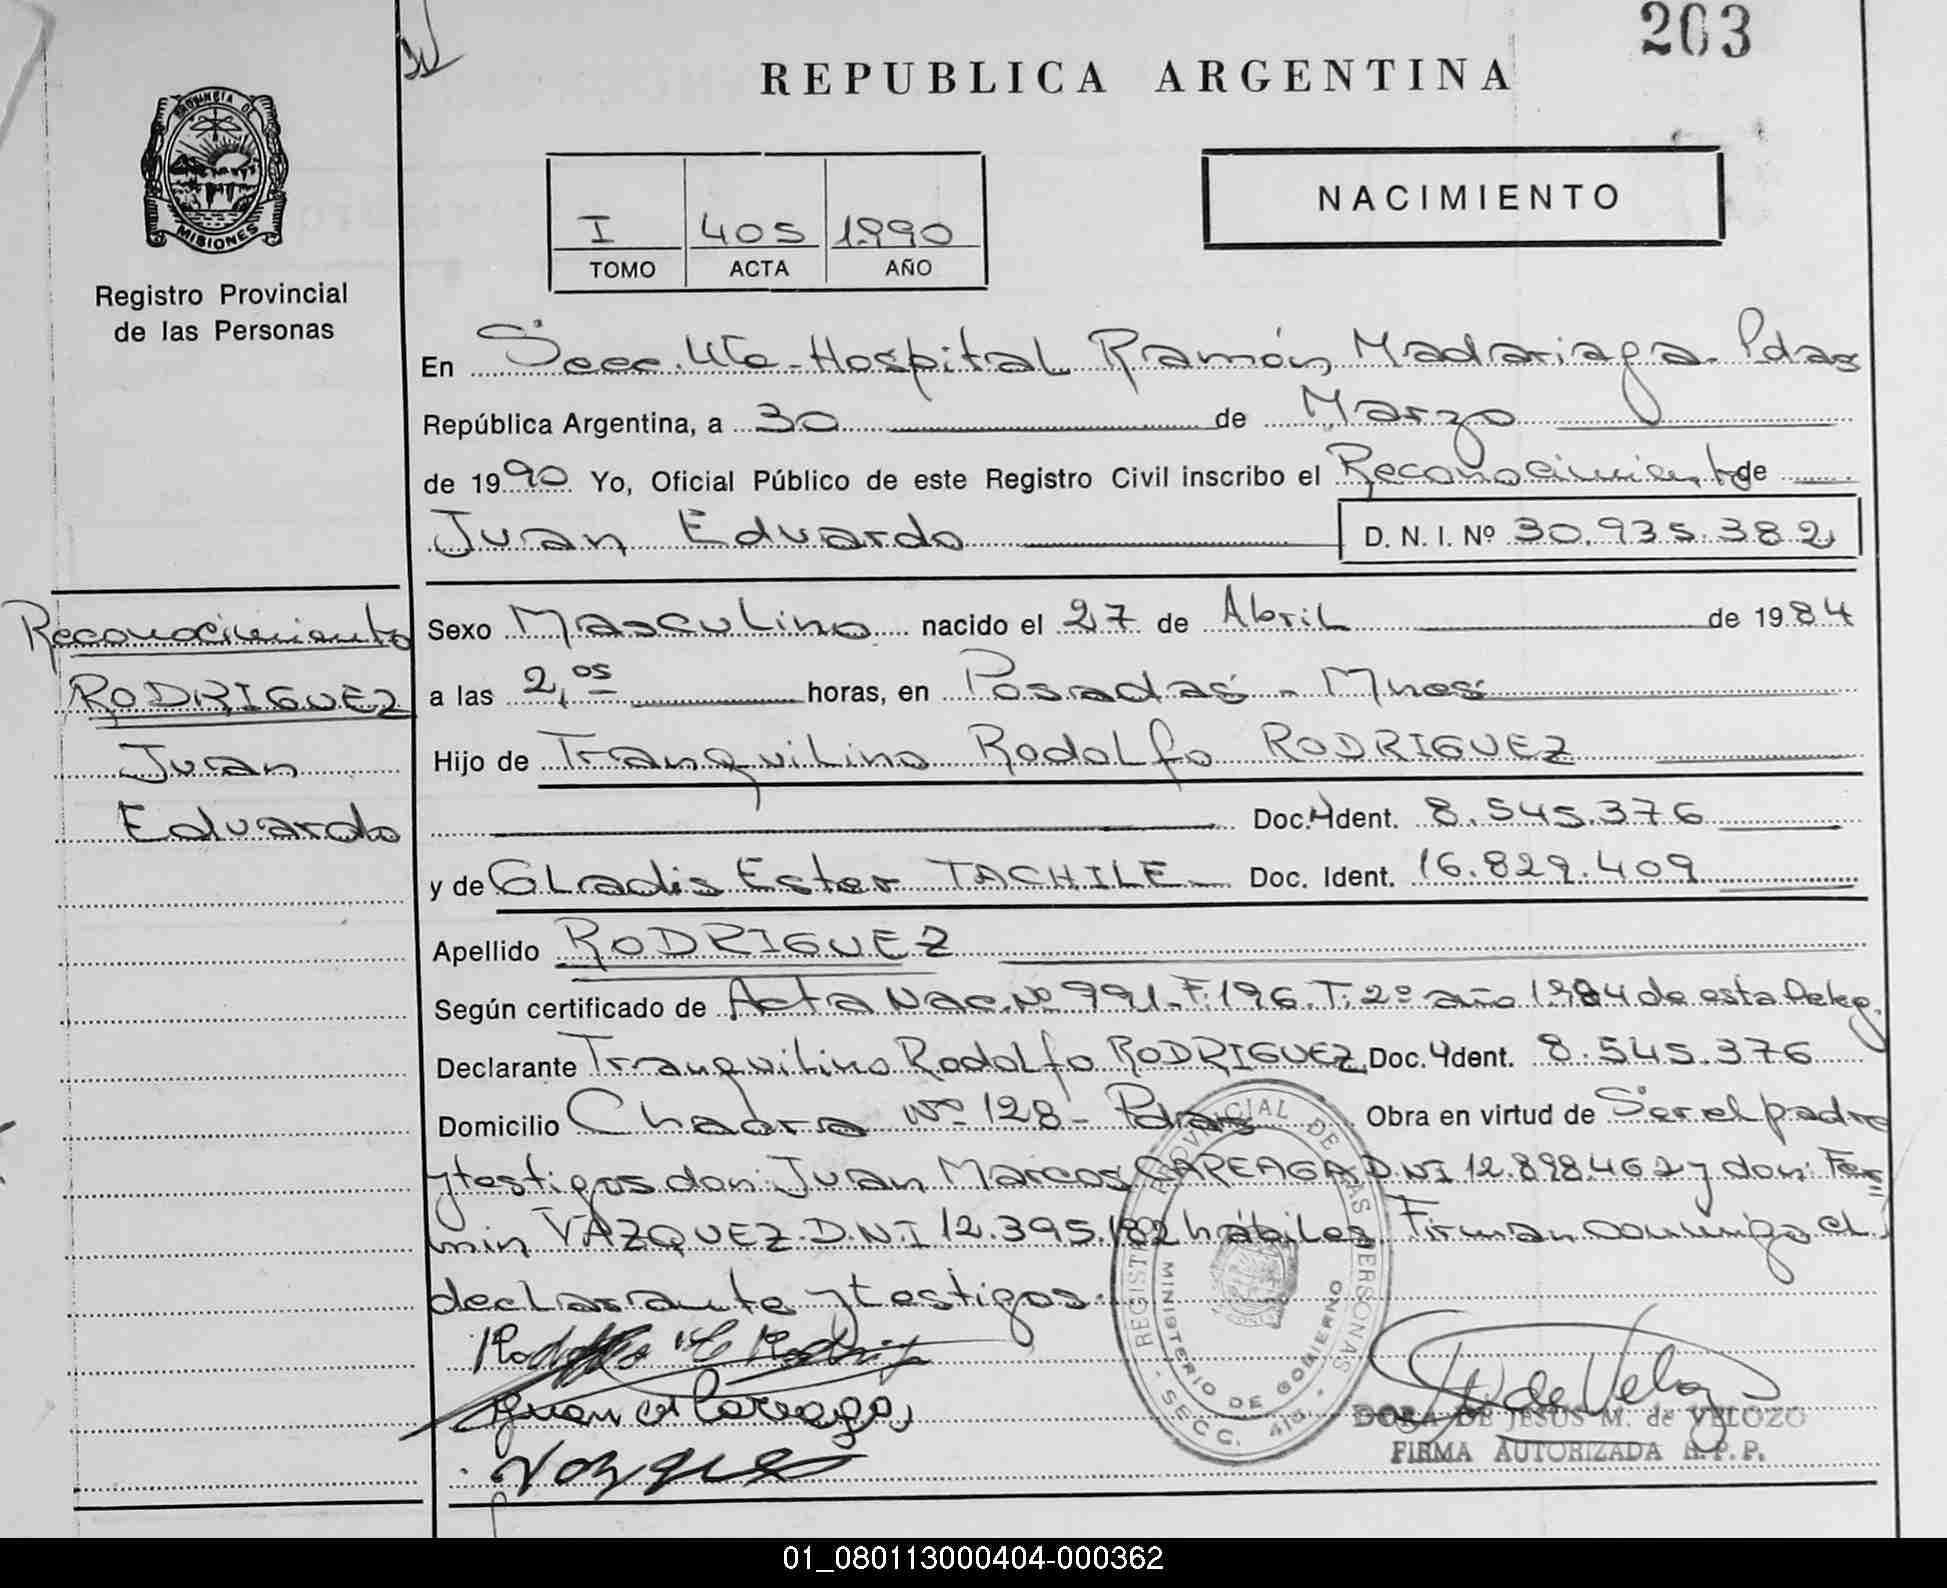 203
REPUBLICA ARGENTINA
PROVINCIA DE
MISIONES
Registro Provincial
de las Personas
I 405 1990
TOMO ACTA AÑO
NACIMIENTO
En Secc. 4ta - Hospital Ramón Madariaga - Pdas
República Argentina, a 30 de Marzo
de 1990 Yo, Oficial Público de este Registro Civil inscribo el Reconocimiento de
Juan Eduardo D. N. I. Nº 30.935.382
Reconocimiento
RODRIGUEZ
Juan
Eduardo
Sexo Masculino nacido el 27 de Abril de 1984
a las 2,05 horas, en Posadas - Mnes
Hijo de Tranquilino Rodolfo RODRIGUEZ
Doc. Ident. 8.545.376
y de Gladis Ester TACHILE Doc. Ident. 16.829.409
Apellido RODRIGUEZ
Según certificado de Acta Nac. Nº 791. F. 196. T. 2º año 1984 de esta Deleg.
Declarante Tranquilino Rodolfo RODRIGUEZ Doc. Ident. 8.545.376
Domicilio Chacra Nº 128 - Pdas Obra en virtud de Ser el padre
y testigos don: Juan Marcos CAREAGA D.N.I 12.898.462 y don: Fer=
min VAZQUEZ. D.N.I 12.395.182 hábiles. Firman conmigo el
declarante y testigos.
REGISTRO PROVINCIAL DE LAS PERSONAS
MINISTERIO DE GOBIERNO
SECC. 4ta.
Vazquez
DORA DE JESUS M. de VELOZO
FIRMA AUTORIZADA R.P.P.
01_080113000404-000362